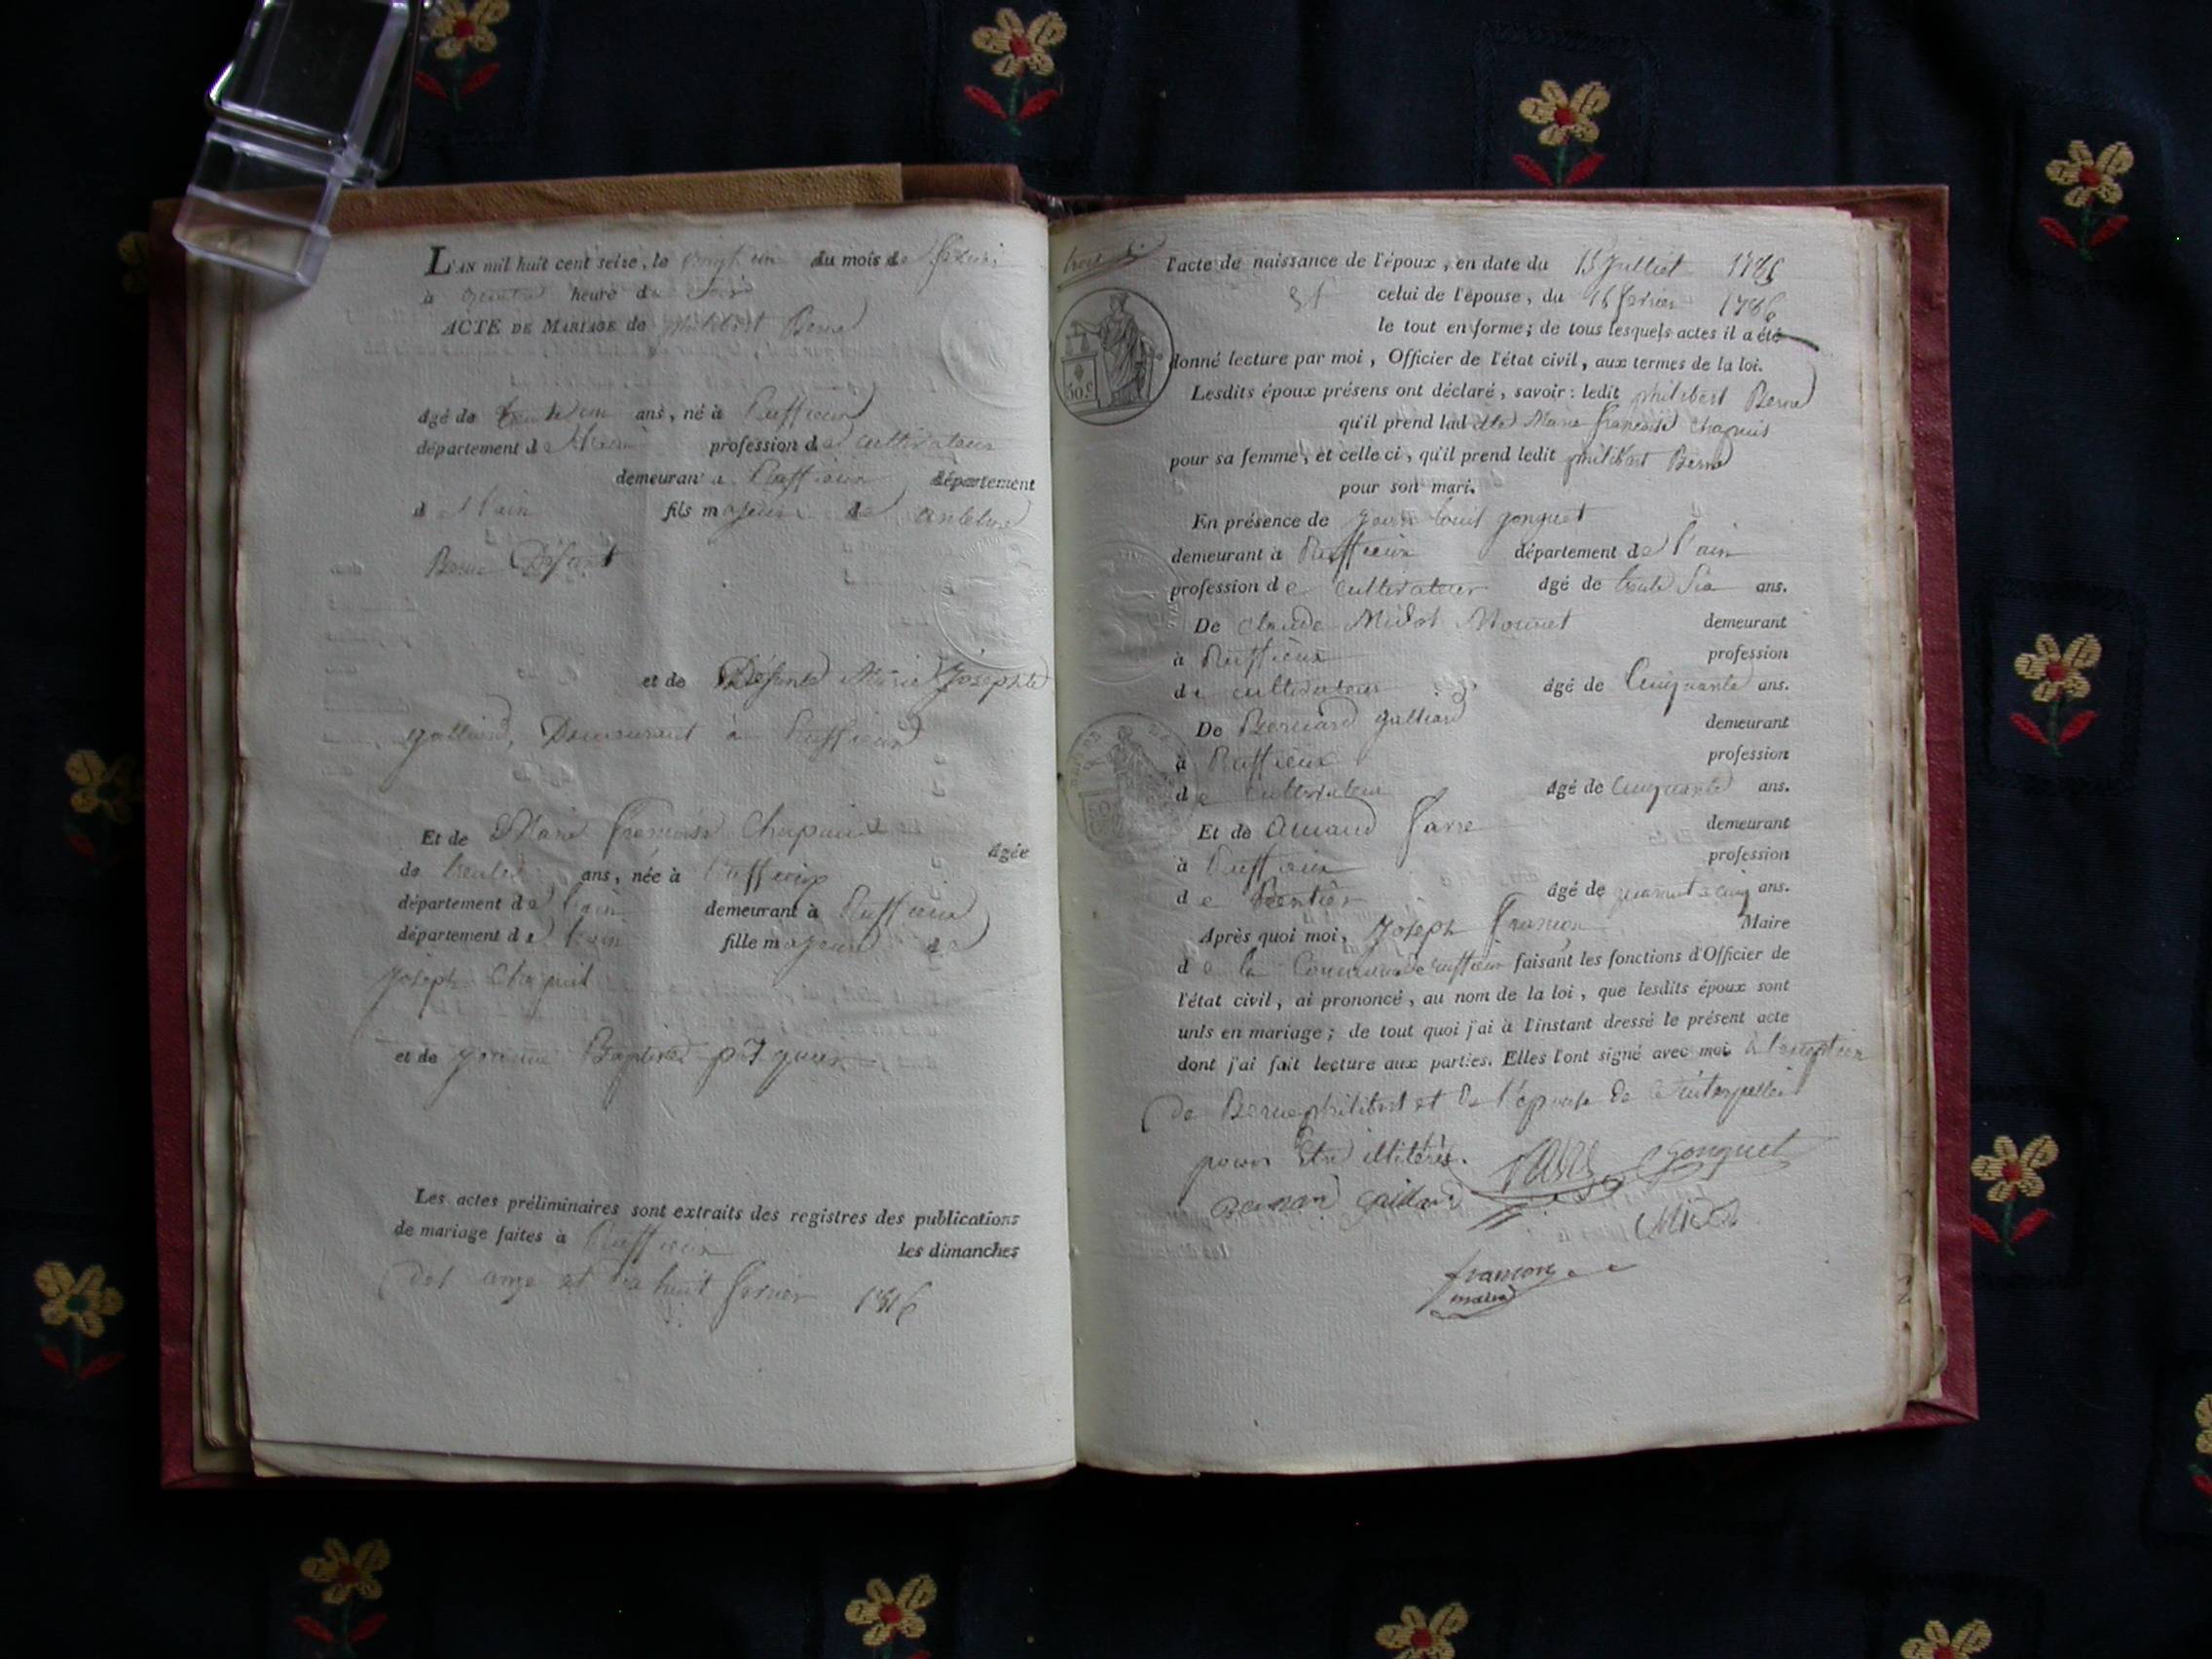 L'AN mil huit cent seize, le vingt un du mois de fevrier
à quatre heure du soir
ACTE DE MARIAGE de philibert Berne
âgé de trente un ans, né à Ruffieux
département de l'ain profession de cultivateur
demeurant à Ruffieux département
de l'ain fils majeur de antelme
Berne Défunt
et de Défunte Marie Josephte
galliard, Demeurant à Ruffieux
Et de Marie françoise Chapuis
âgée
de trente ans, née à Ruffieux
département de l'ain demeurant à Ruffieux
département de l'ain fille majeure de
Joseph Chapuis
et de Baptiste
Les actes préliminaires sont extraits des registres des publications
de mariage faites à Ruffieux les dimanches
des onze et dix huit fevrier 1816
l'acte de naissance de l'époux, en date du 15 Juillet 1785
et celui de l'épouse, du 16 fevrier 1786
le tout en forme; de tous lesquels actes il a été
donné lecture par moi, Officier de l'état civil, aux termes de la loi.
50 c.
Lesdits époux présens ont déclaré, savoir: ledit philibert Berne
qu'il prend ladite Marie françoise Chapuis
pour sa femme, et celle ci, qu'il prend ledit philibert Berne
pour son mari.
En présence de Jean louis gonguet
demeurant à Ruffieux département de l'ain
profession de cultivateur âgé de trente six ans.
De Claude Midot Monnet demeurant
à Ruffieux profession
de cultivateur âgé de Cinquante ans.
De Bernard galliard demeurant
à Ruffieux profession
de cultivateur âgé de Cinquante ans.
Et de Amand farre demeurant
à Ruffieux profession
de Rentier âgé de quarante cinq ans.
Après quoi moi, Joseph françon Maire
de la Commune de ruffieux faisant les fonctions d'Officier de
l'état civil, ai prononcé, au nom de la loi, que lesdits époux sont
unis en mariage; de tout quoi j'ai à l'instant dressé le présent acte
dont j'ai fait lecture aux parties. Elles l'ont signé avec moi à l'exception
de Berne philibert et de l'épouse de ce interpellés
pour Etre illitérés. farre gonguet
Bernard galliard
Midot
françon
maire